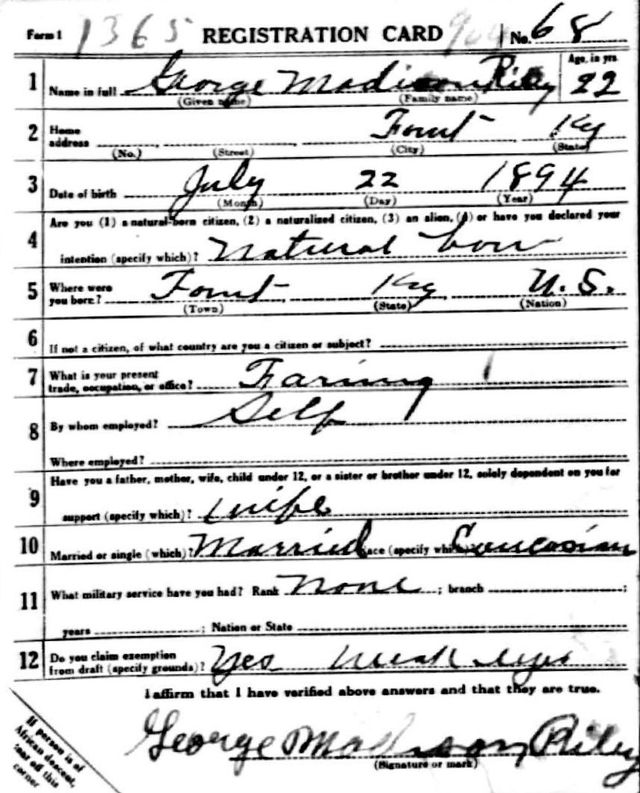 Form 1 1365 REGISTRATION CARD No. 68
1 Name in full George Madison Riley Age, in yrs. 22
(Given name) (Family name)
2 Home address Fount Ky
(No.) (Street) (City) (State)
3 Date of birth July 22 1894
(Month) (Day) (Year)
Are you (1) a natural-born citizen, (2) a naturalized citizen, (3) an alien, (4) or have you declared your
4 intention (specify which)? Natural born
5 Where were you born? Fount Ky U.S.
(Town) (State) (Nation)
6 If not a citizen, of what country are you a citizen or subject?
7 What is your present trade, occupation, or office? Farming
8 By whom employed? Self
Where employed?
Have you a father, mother, wife, child under 12, or a sister or brother under 12, solely dependent on you for
9 support (specify which)? wife
10 Married or single (which)? Married Race (specify which)? Caucasian
11 What military service have you had? Rank None ; branch ;
years ; Nation or State
12 Do you claim exemption from draft (specify grounds)? Yes weak eyes
I affirm that I have verified above answers and that they are true.
George Madison Riley
(Signature or mark)
If person is of
African descent,
tear off this
corner